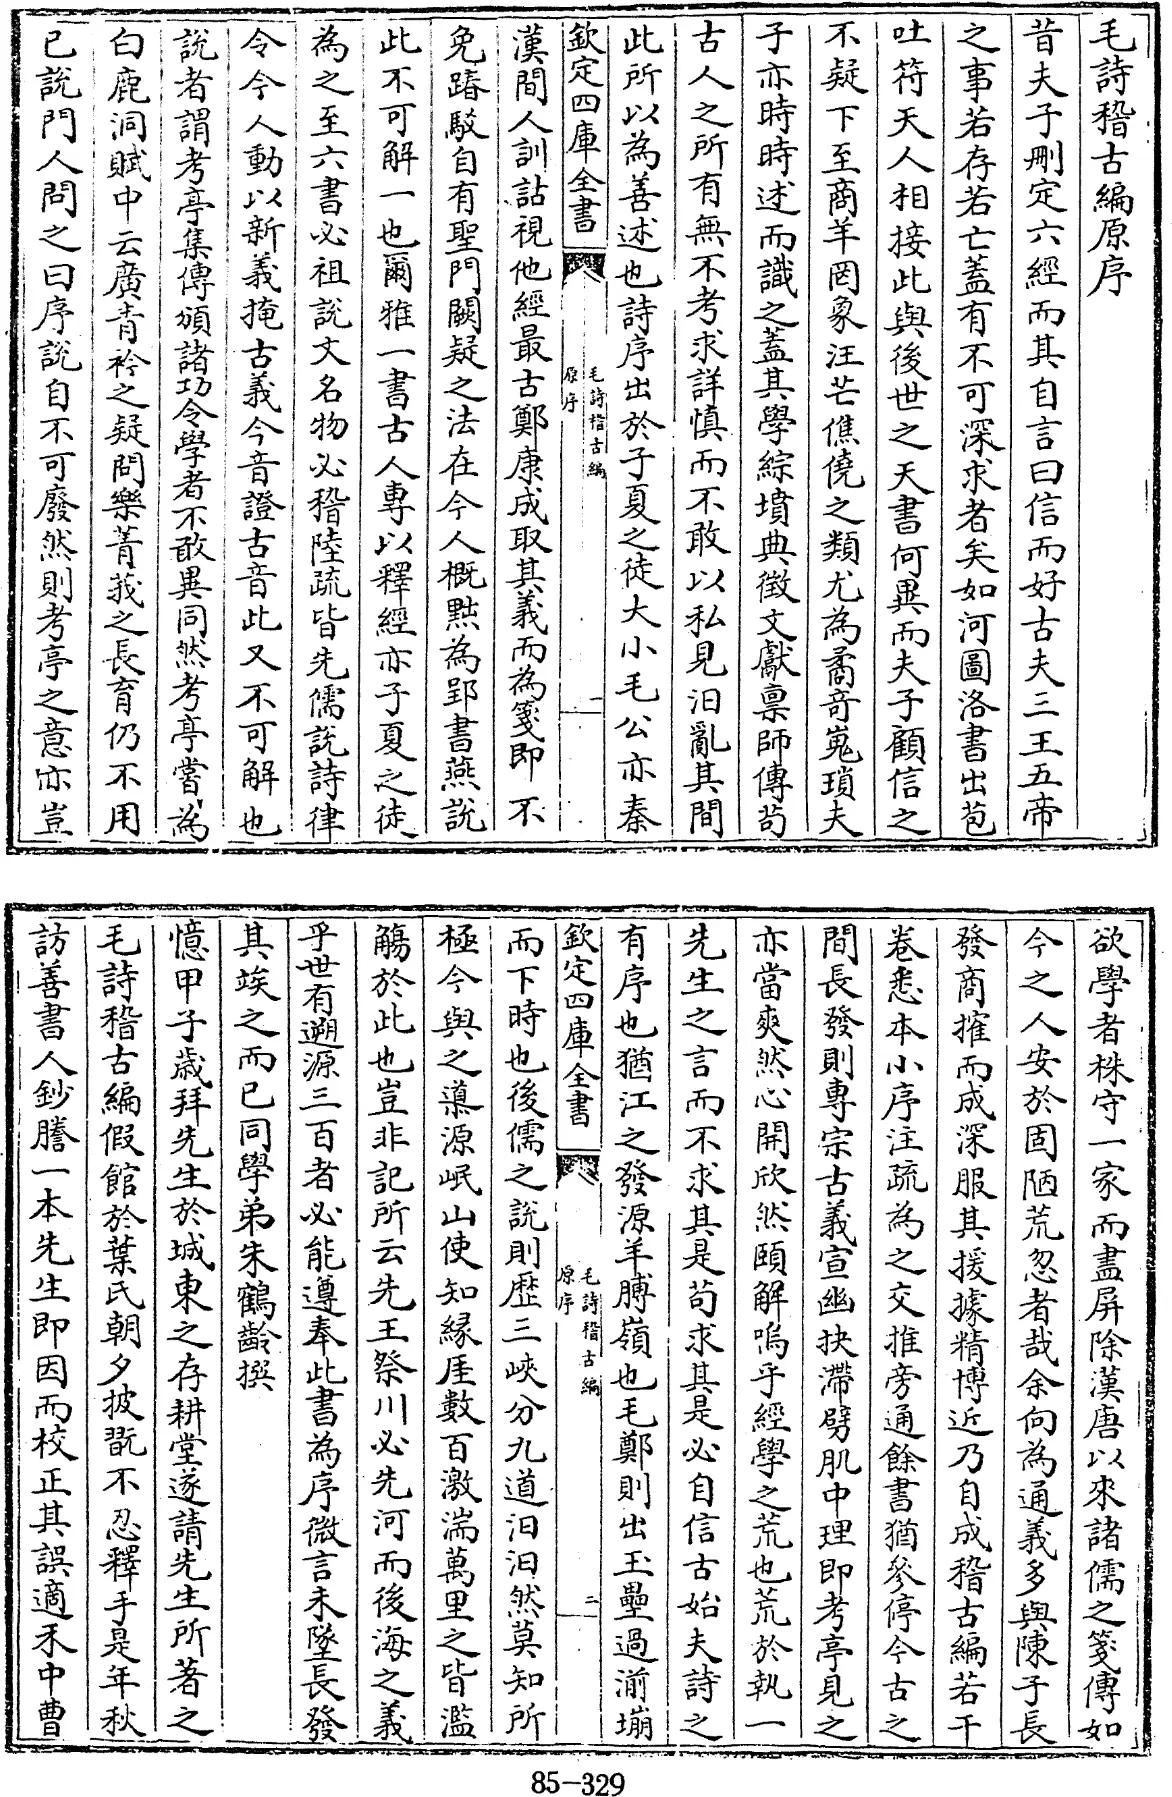 毛詩稽古編原序
昔夫子刪定六經而其自言曰信而好古夫三王五帝
之事若存若亡蓋有不可深求者矣如河圖洛書出苞
吐符天人相接此與後世之天書何異而夫子顧信之
不疑下至商羊罔象汪芒僬僥之類尤為矞奇嵬瑣夫
子亦時時述而識之蓋其學綜墳典徵文獻禀師傳苟
古人之所有無不考求詳慎而不敢以私見汨亂其間
此所以為善述也詩序出於子夏之徒大小毛公亦秦
欽定四庫全書
毛詩稽古編
原序
一
漢間人訓詁視他經最古鄭康成取其義而為箋即不
免踳駁自有聖門闕疑之法在今人概黜為郢書燕說
此不可解一也爾雅一書古人專以釋經亦子夏之徒
為之至六書必祖說文名物必稽陸疏皆先儒說詩律
令今人動以新義掩古義今音證古音此又不可解也
說者謂考亭集傳頒諸功令學者不敢異同然考亭嘗為
白鹿洞賦中云廣青衿之疑問樂菁莪之長育仍不用
已說門人問之曰序說自不可廢然則考亭之意亦豈
欲學者株守一家而盡屏除漢唐以來諸儒之箋傳如
今之人安於固陋荒忽者哉余向為通義多與陳子長
發商搉而成深服其援據精博近乃自成稽古編若干
卷悉本小序注疏為之交推旁通餘書猶參停今古之
間長發則專宗古義宣幽抉滯劈肌中理即考亭見之
亦當爽然心開欣然頤解嗚乎經學之荒也荒於執一
先生之言而不求其是苟求其是必自信古始夫詩之
有序也猶江之發源羊膊嶺也毛鄭則出玉壘過湔堋
欽定四庫全書
毛詩稽古編
原序
二
而下時也後儒之說則歴三峽分九道汨汨然莫知所
極今與之導源岷山使知緣厓數百激湍萬里之皆濫
觴於此也豈非記所云先王祭川必先河而後海之義
乎世有遡源三百者必能遵奉此書為序微言未墜長發
其竢之而已同學弟朱鶴齡撰
憶甲子歲拜先生於城東之存耕堂遂請先生所著之
毛詩稽古編假館於葉氏朝夕披翫不忍釋手是年秋
訪善書人鈔謄一本先生即因而校正其誤適禾中曹
85-329